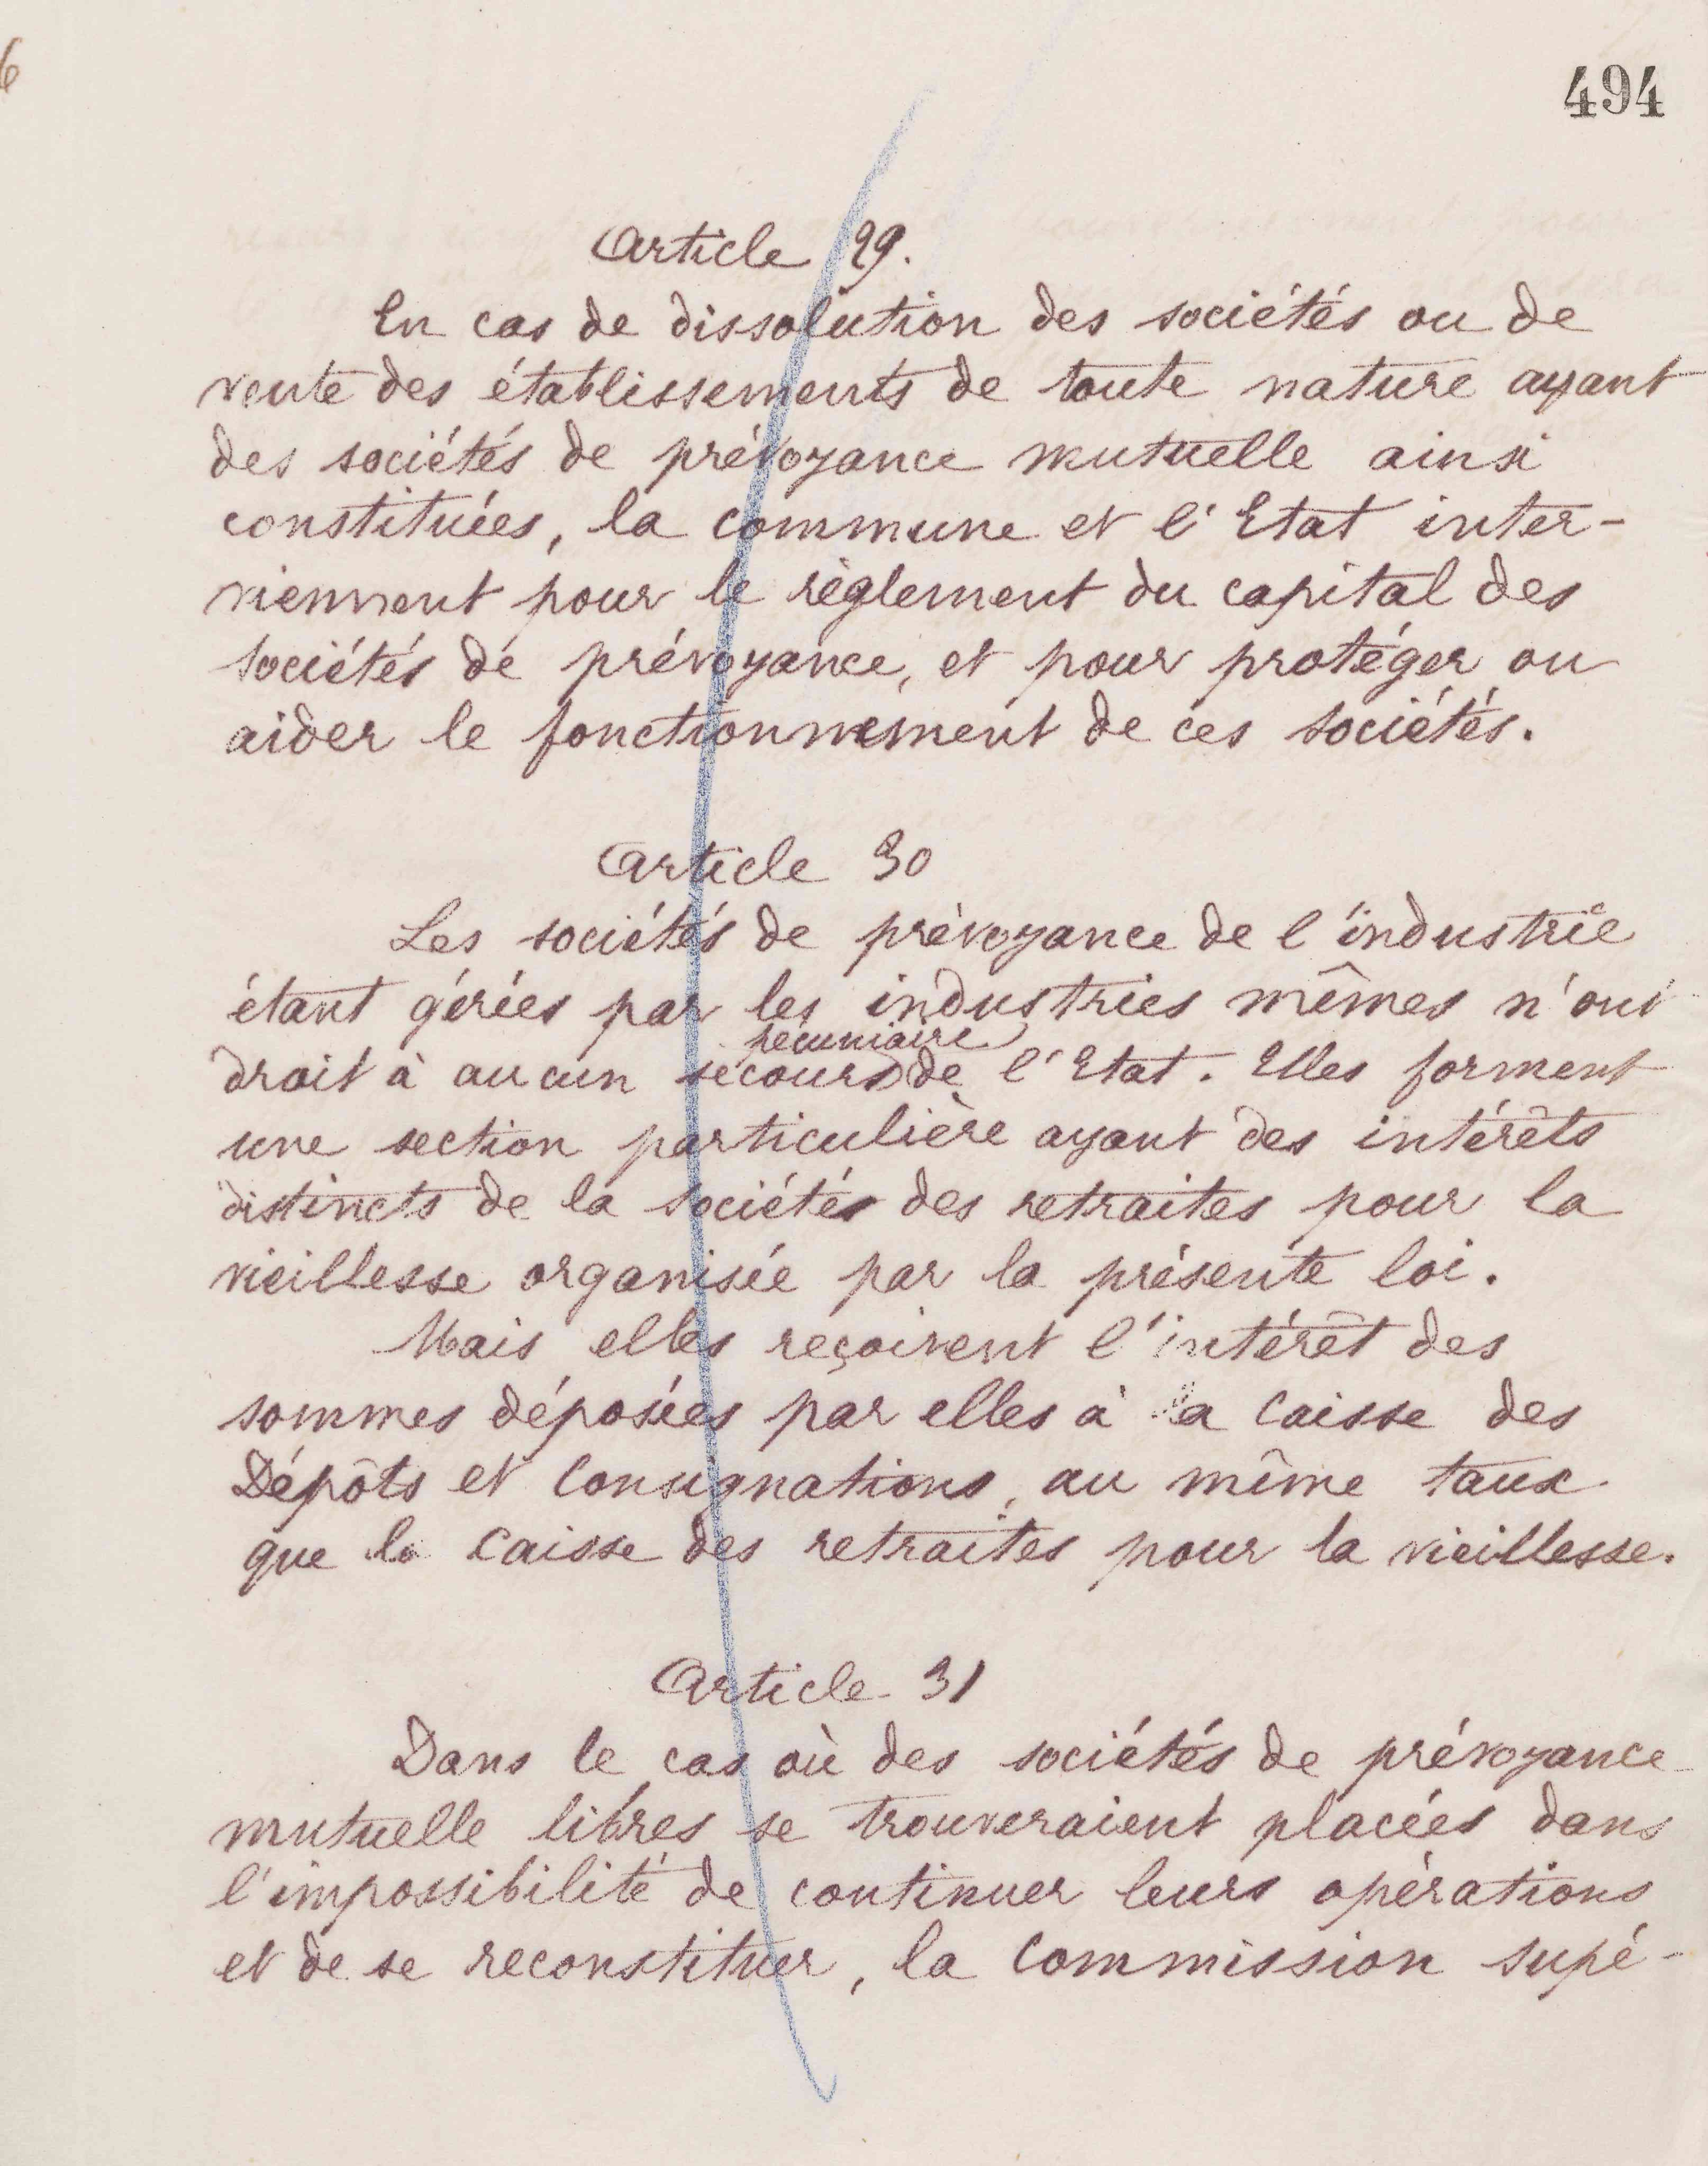 494
Article 29.
En cas de dissolution des sociétés ou de
vente des établissements de toute nature ayant
des sociétés de prévoyance mutuelle ainsi
constituées, la commune et l'Etat inter-
viennent pour le règlement du capital des
sociétés de prévoyance, et pour protéger ou
aider le fonctionnement de ces sociétés.
Article 30
Les sociétés de prévoyance de l'industrie
étant gérées par les industries mêmes n'ont
pécuniaire
droit à aucun secours de l'Etat. Elles forment
une section particulière ayant des intérêts
distincts de la sociétés des retraites pour la
vieillesse organisée par la présente loi.
Mais elles reçoivent l'intérêt des
sommes déposées par elles à la Caisse des
Dépôts et Consignations, au même taux
que la Caisse des retraites pour la vieillesse.
Article 31
Dans le cas où des sociétés de prévoyance
mutuelle libres se trouveraient placées dans
l'impossibilité de continuer leurs opérations
et de se reconstituer, la Commission supé-